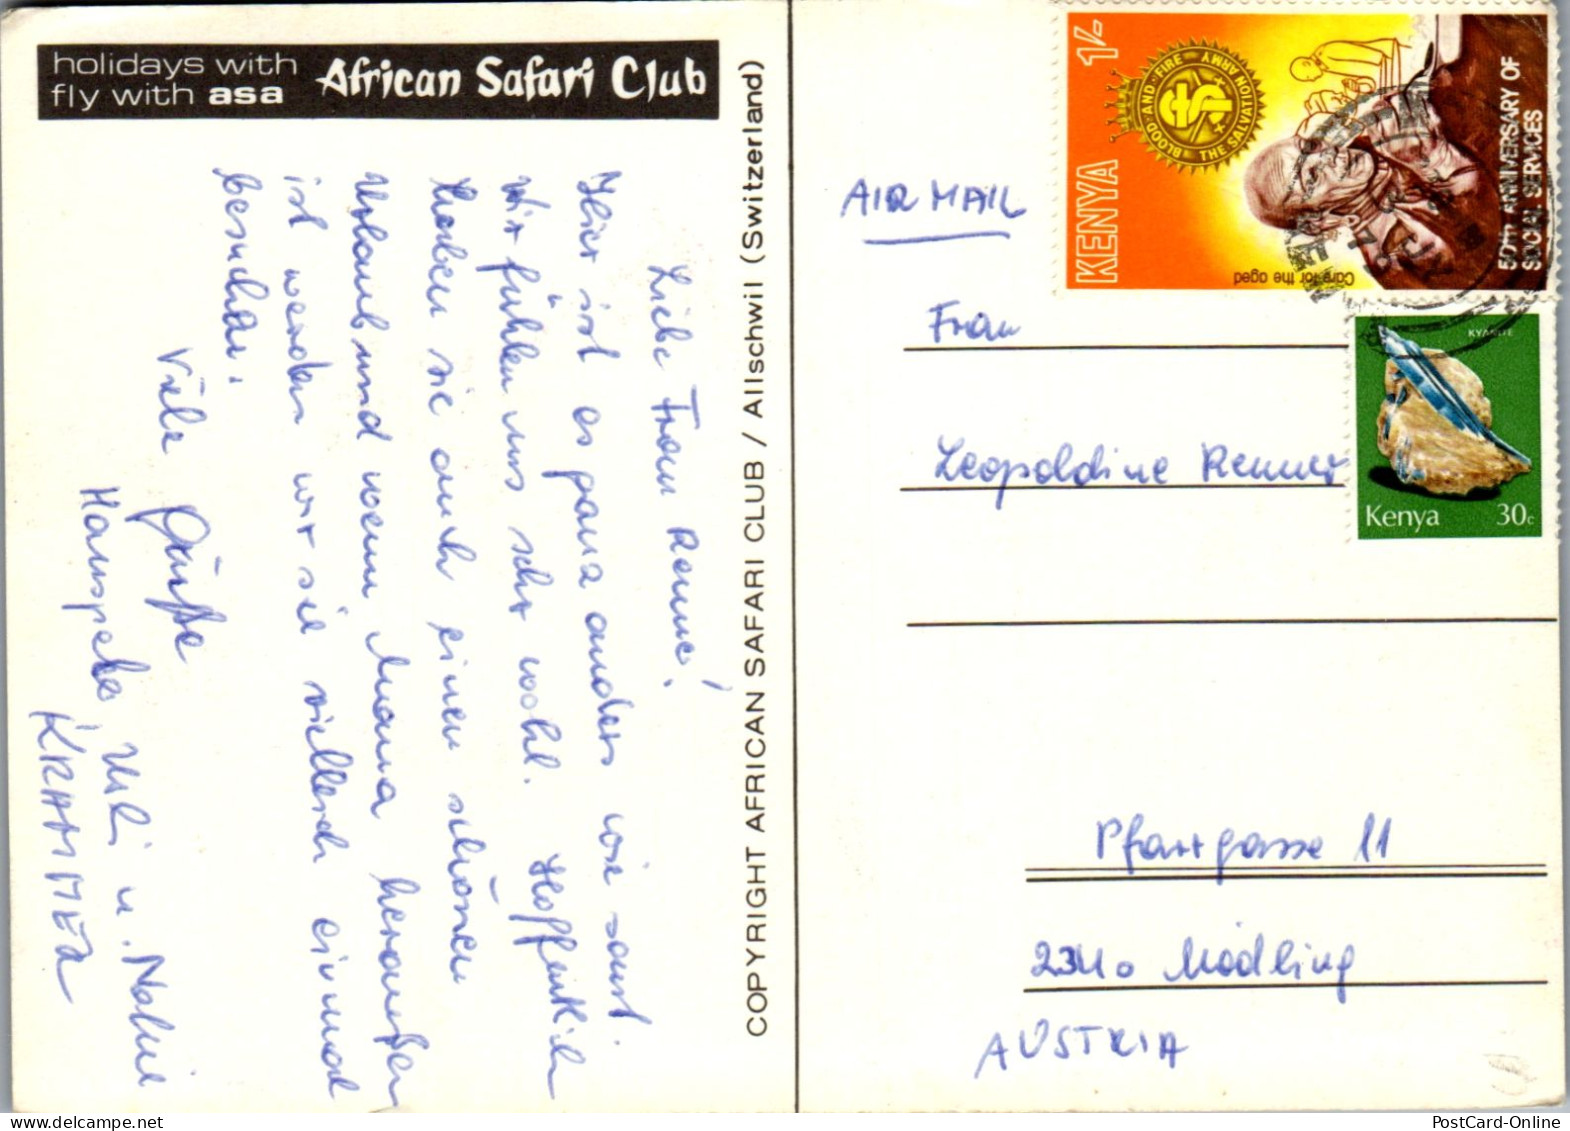 holidays with
fly with asa
African Safari Club
Liebe Frau Renner!
Hier ist es ganz anders wie sonst.
Wir fühlen uns sehr wohl. Hoffentlich
haben sie auch einen schönen
Urlaub und wenn Mama heraußen
ist werden wir sie vielleicht einmal
besuchen.
Viele Grüße
Hanspeter, Uli u.
KRAMMER
COPYRIGHT AFRICAN SAFARI CLUB / Allschwil (Switzerland)
AIR MAIL
KENYA 1/-
BLOOD AND FIRE
THE SALVATION ARMY
Care for the aged
50TH ANNIVERSARY OF
SOCIAL SERVICES
KYANITE
Kenya 30c
Frau
Leopoldine Renner
Pfarrgasse 11
2340 Mödling
AUSTRIA
PostCard-Online